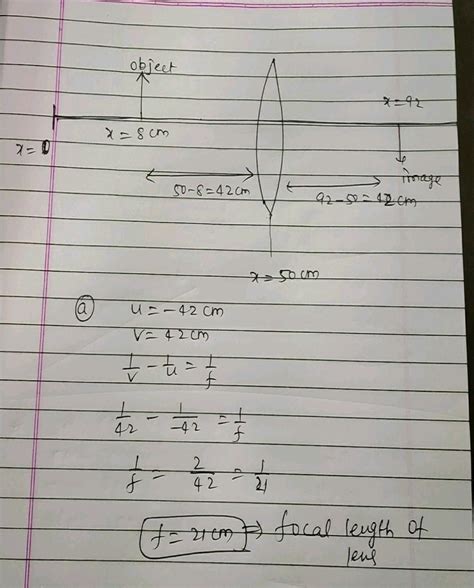 object
x=92
x=8cm
x=0
image
50-8=42cm
92-50=42cm
x=50cm
(a) u=-42cm
v=42cm
1/v - 1/u = 1/f
1/42 - 1/-42 = 1/f
1/f = 2/42 = 1/21
f=21cm ⇒ focal length of
lens